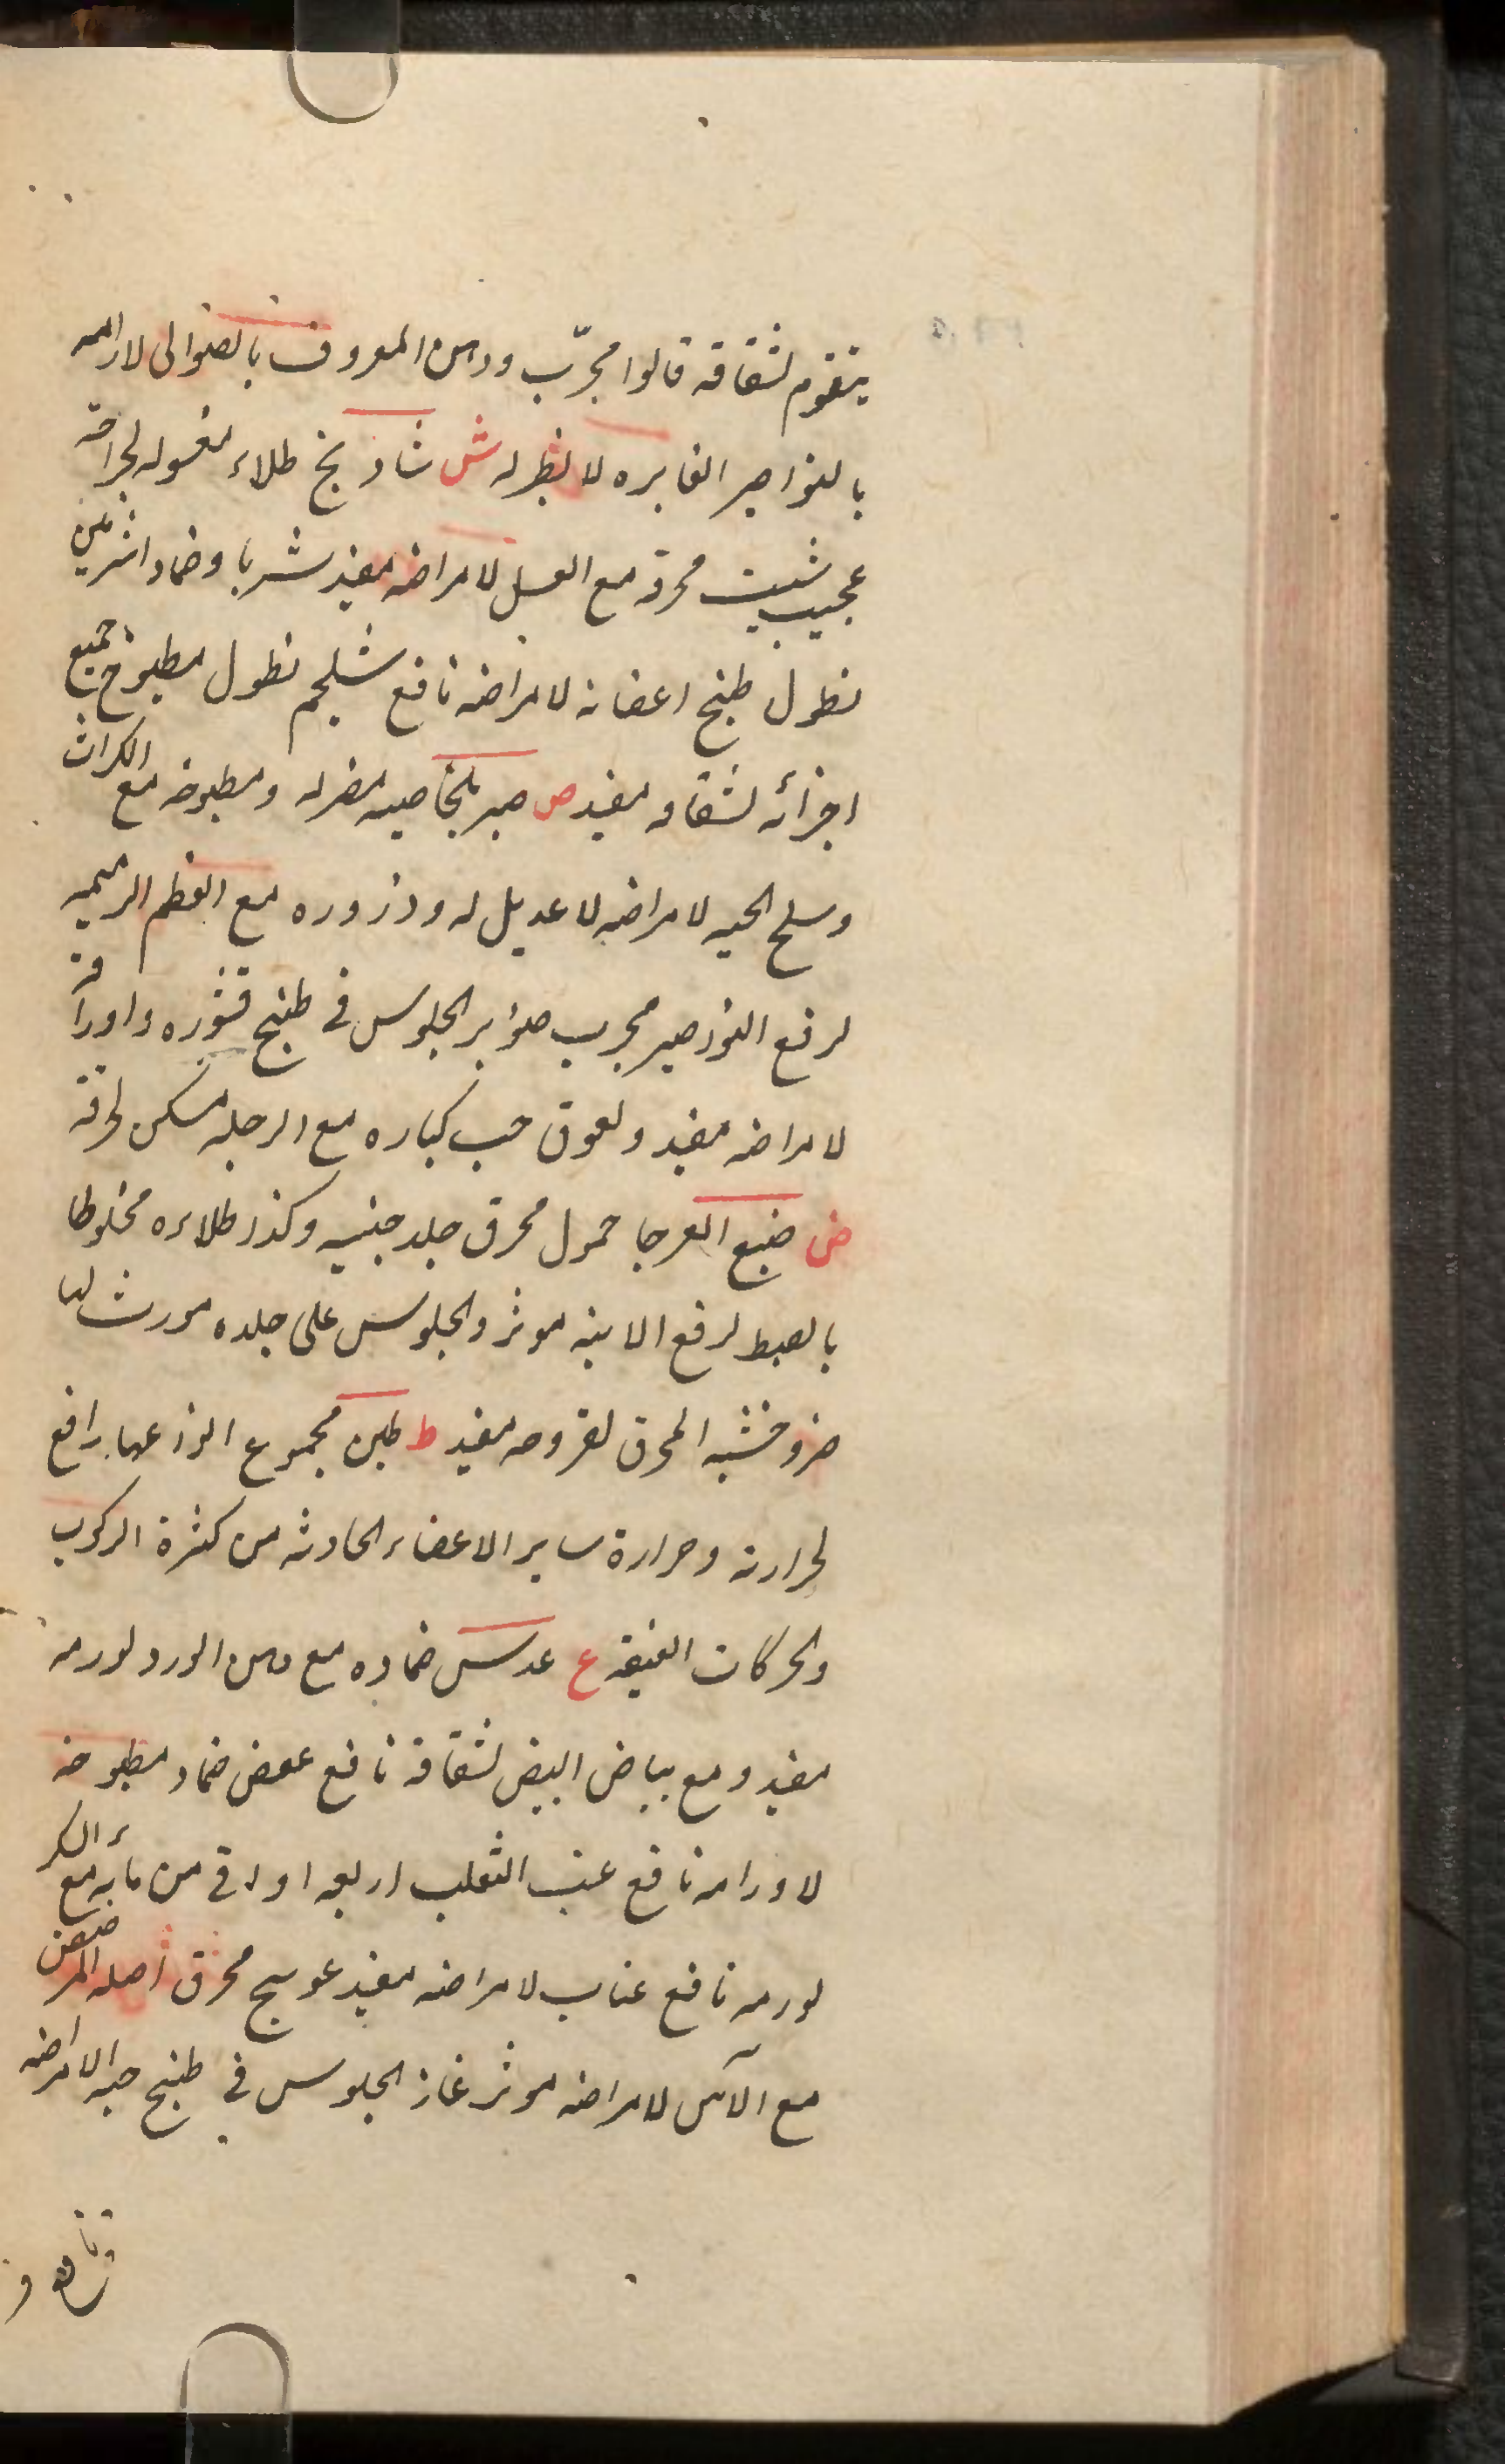 يتقوم لشقاقه قالوا مجرّب ودهن المعروف بالصوالى لازالمه
بالنواصير الغايره لا نظير له ش شادنج طلاء مغسوله لجراحته
عجيب شبت محرقه مع العسل لامراضه مفيد شربا وضمادا
نطول طبخ اعضانه لامراضه نافع شلجم نطول مطبوخ جميع
اجزائه لشقاقه مفيد ص صبر بالخاصيه مضر له ومطبوخه مع الكراث
وسلخ الحيه لامراضه لا عديل له وذروره مع العظم الرميمه
لرفع النواصير مجرب صنوبر الجلوس فى طبخ قشوره واوراقه
لامراضه مفيد ولعوق حب كباره مع الرجله مسكن لحرقته
ض ضبع العرجا حمول محرق جلد جنبيه وكذا طلاءه مخلوطا
لرفع الابنه موثر والجلوس على جلده مورث لها
ضرو خشبه المحرق لقروحه مفيد ط طين مجموع انواعها رافع
لحرارته وحرارة ساير الاعضاء الحادثه من كثرة الركوب
والحركات العنيفه ع عدس ضماده مع دهن الورد لورمه
مفيد ومع بياض البيض لشقاقه نافع عفص ضماد مطبوخه
لاورامه نافع عنب الثعلب اربعه اواقى من مائه مع السكر
لورمه نافع عناب لامراضه مفيد عوسج محرق اصله
مع الآس لامراضه موثر غار الجلوس فى طبخ حبه لامراضه